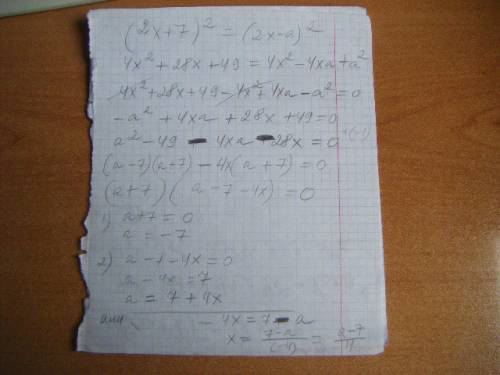 (2x+7)² = (2x-a)²
4x² + 28x + 49 = 4x² - 4xa + a²
4x² + 28x + 49 - 4x² + 4xa - a² = 0
-a² + 4xa + 28x + 49 = 0
a² - 49 - 4xa - 28x = 0 ·(-1)
(a-7)(a+7) - 4x(a+7) = 0
(a+7)(a-7-4x) = 0
1) a+7 = 0
a = -7
2) a-7-4x = 0
a-4x = 7
a = 7+4x
или
-4x = 7-a
x = (7-a)/(-4) = (a-7)/4